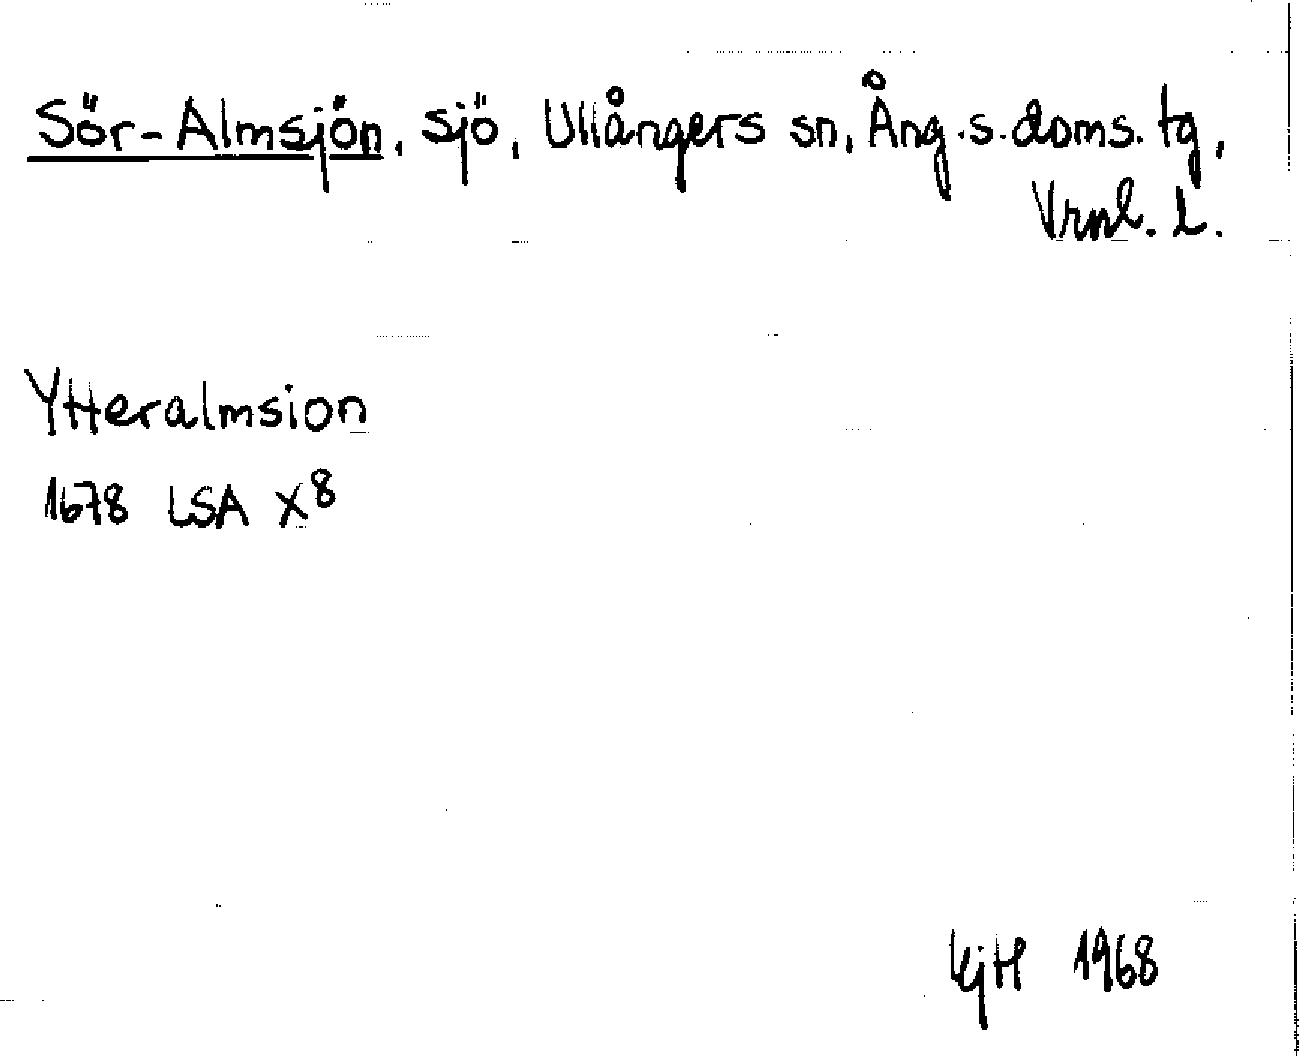 Sör-Almsjön, sjö, Ullångers sn, Ång.s.doms.tg,
Vrnl. L.
Ytteralmsion
1678 LSA X⁸
KjH 1968